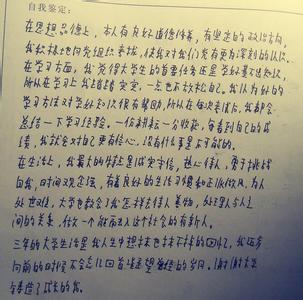 自我鉴定:
在思想品德上,本人有良好道德修养,有坚定的政治方向,
我积极地向党组织靠拢,使我对我们党有更为深刻的认识。
在学习方面,我觉得大学生的首要任务还是学好基础知识,
所以在学习上我踏踏实实,一点也不放松自己。我认为好的
学习方法对学好知识很有帮助,所以在每次考试后,我都会
总结一下学习经验。一份耕耘一分收获,每看到自己的成
绩,我就会对自己更有信心,没有什么事是不可能的。
在生活上,我最大的特点是诚实守信,热心待人,勇于挑战
自我,时间观念强,有着良好的生活习惯和正派作风。为人
处世
间的关系,做一个能融入这个社会的有新人。
三年的大学生活是我人生中想抹也抹不掉的回忆,我迈步
向前的时候不会忘记回首凝望曾经的岁月。谢谢大学
生